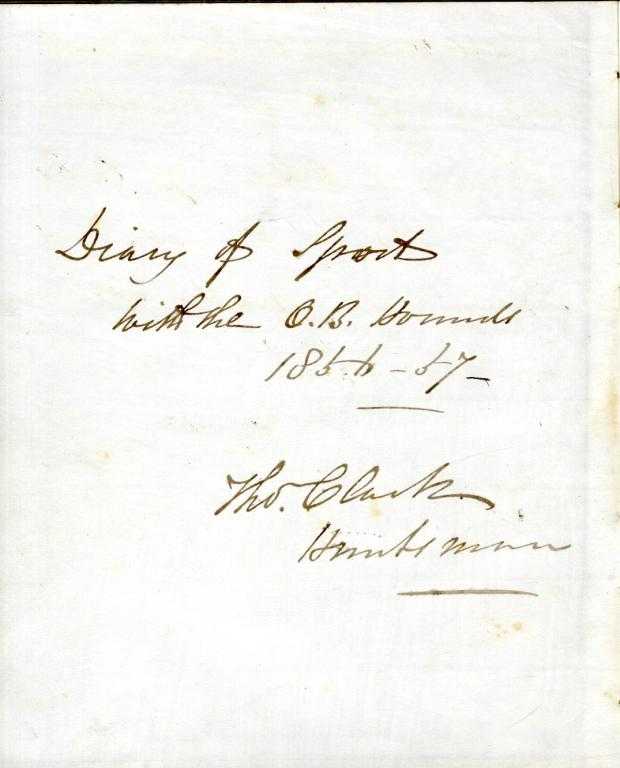 Diary of Sport
with the O.B. Hounds
1856-57
Tho. Clark
Huntsman